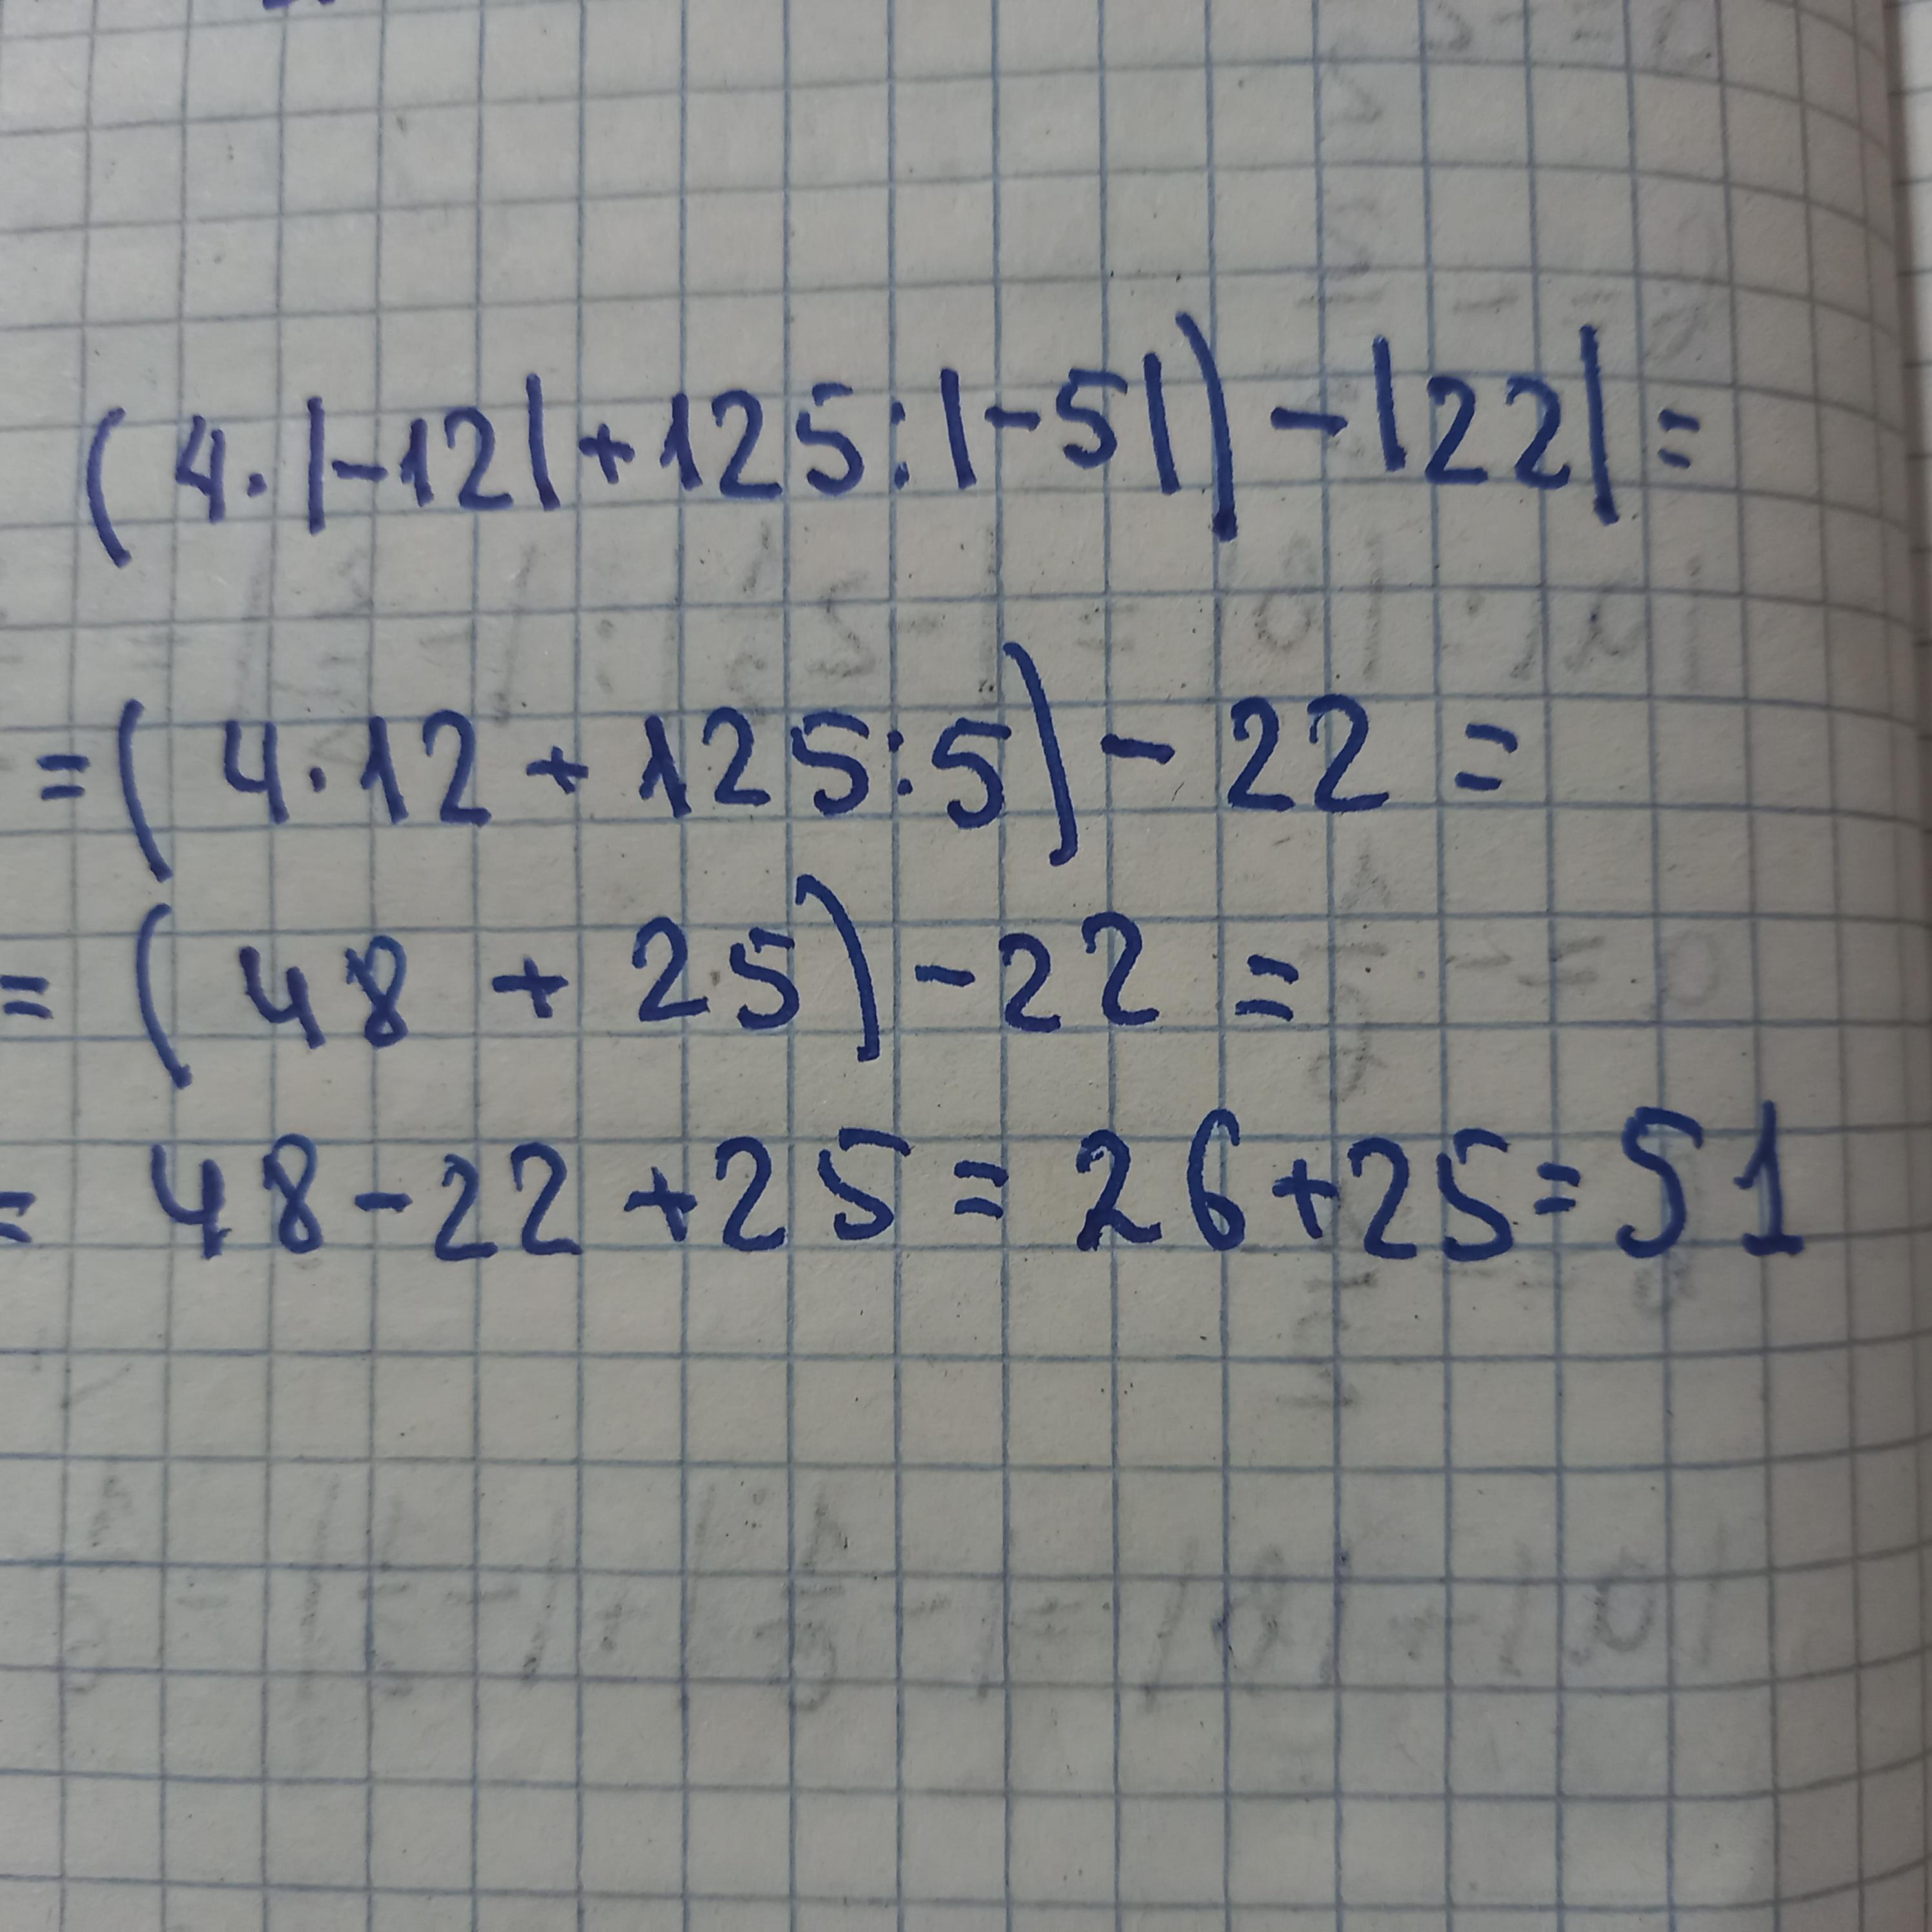 (4·|-12|+125:|-5|)-|22|=
=(4·12+125:5)-22=
=(48+25)-22=
=48-22+25=26+25=51